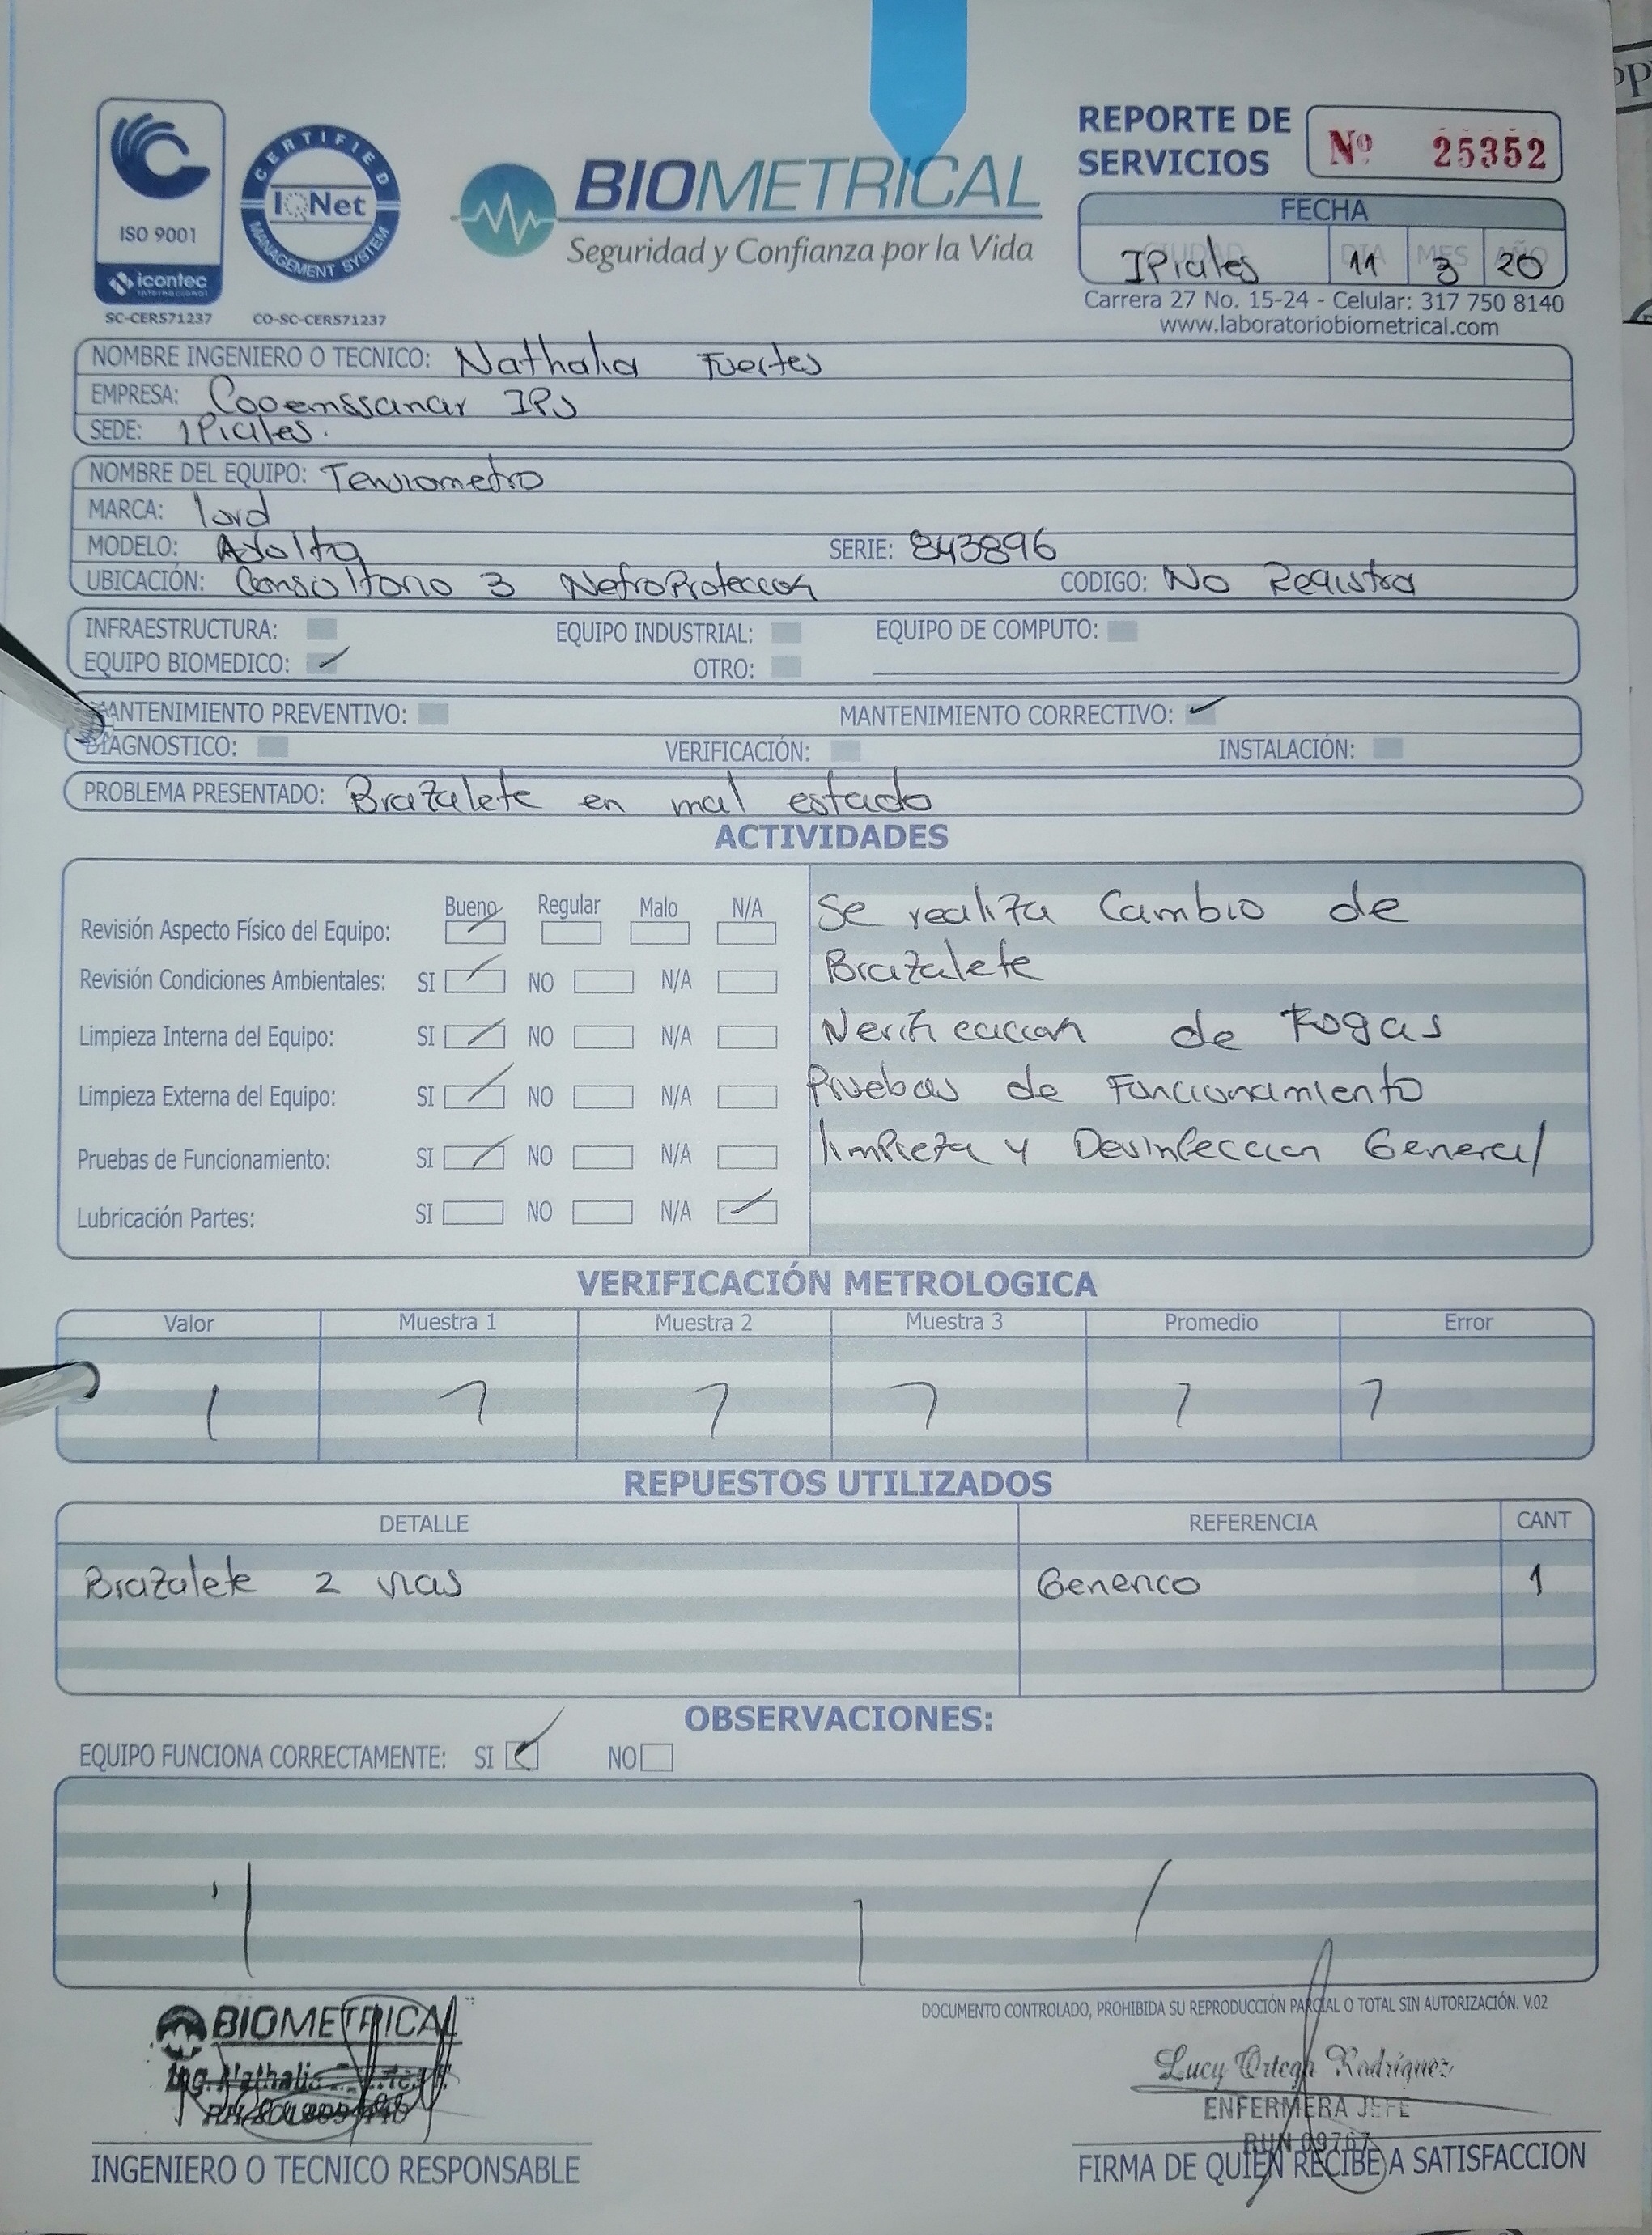 ISO 9001
icontec
INTERNACIONAL
SC-CER571237
CERTIFIED
IQNet
MANAGEMENT SYSTEM
CO-SC-CER571237
BIOMETRICAL
Seguridad y Confianza por la Vida
REPORTE DE
SERVICIOS
Nº 25352
FECHA
CIUDAD DIA MES AÑO
IPiales 11 3 20
Carrera 27 No. 15-24 - Celular: 317 750 8140
www.laboratoriobiometrical.com
NOMBRE INGENIERO O TECNICO: Nathalia Fuertes
EMPRESA: Cooemssanar IPS
SEDE: IPiales.
NOMBRE DEL EQUIPO: Tensiometro
MARCA: lord
MODELO: Adulto SERIE: 843896
UBICACIÓN: Consultorio 3 NefroProteccion CODIGO: No Registra
INFRAESTRUCTURA: EQUIPO INDUSTRIAL: EQUIPO DE COMPUTO:
EQUIPO BIOMEDICO: ✓ OTRO:
MANTENIMIENTO PREVENTIVO: MANTENIMIENTO CORRECTIVO: ✓
DIAGNOSTICO: VERIFICACIÓN: INSTALACIÓN:
PROBLEMA PRESENTADO: Brazalete en mal estado
ACTIVIDADES
Bueno Regular Malo N/A
Revisión Aspecto Físico del Equipo:
Revisión Condiciones Ambientales: SI NO N/A
Limpieza Interna del Equipo: SI NO N/A
Limpieza Externa del Equipo: SI NO N/A
Pruebas de Funcionamiento: SI NO N/A
Lubricación Partes: SI NO N/A
Se realiza Cambio de
Brazalete
Verificacion de Fugas
Pruebas de Funcionamiento
limpieza y Desinfeccion General
VERIFICACIÓN METROLOGICA
Valor Muestra 1 Muestra 2 Muestra 3 Promedio Error
REPUESTOS UTILIZADOS
DETALLE REFERENCIA CANT
Brazalete 2 vias Generico 1
OBSERVACIONES:
EQUIPO FUNCIONA CORRECTAMENTE: SI ✓ NO
DOCUMENTO CONTROLADO, PROHIBIDA SU REPRODUCCIÓN PARCIAL O TOTAL SIN AUTORIZACIÓN. V.02
BIOMETRICAL
Ing. Nathalia
INGENIERO O TECNICO RESPONSABLE
Lucy Ortega Rodríguez
ENFERMERA JEFE
RUN 09767
FIRMA DE QUIEN RECIBE A SATISFACCION